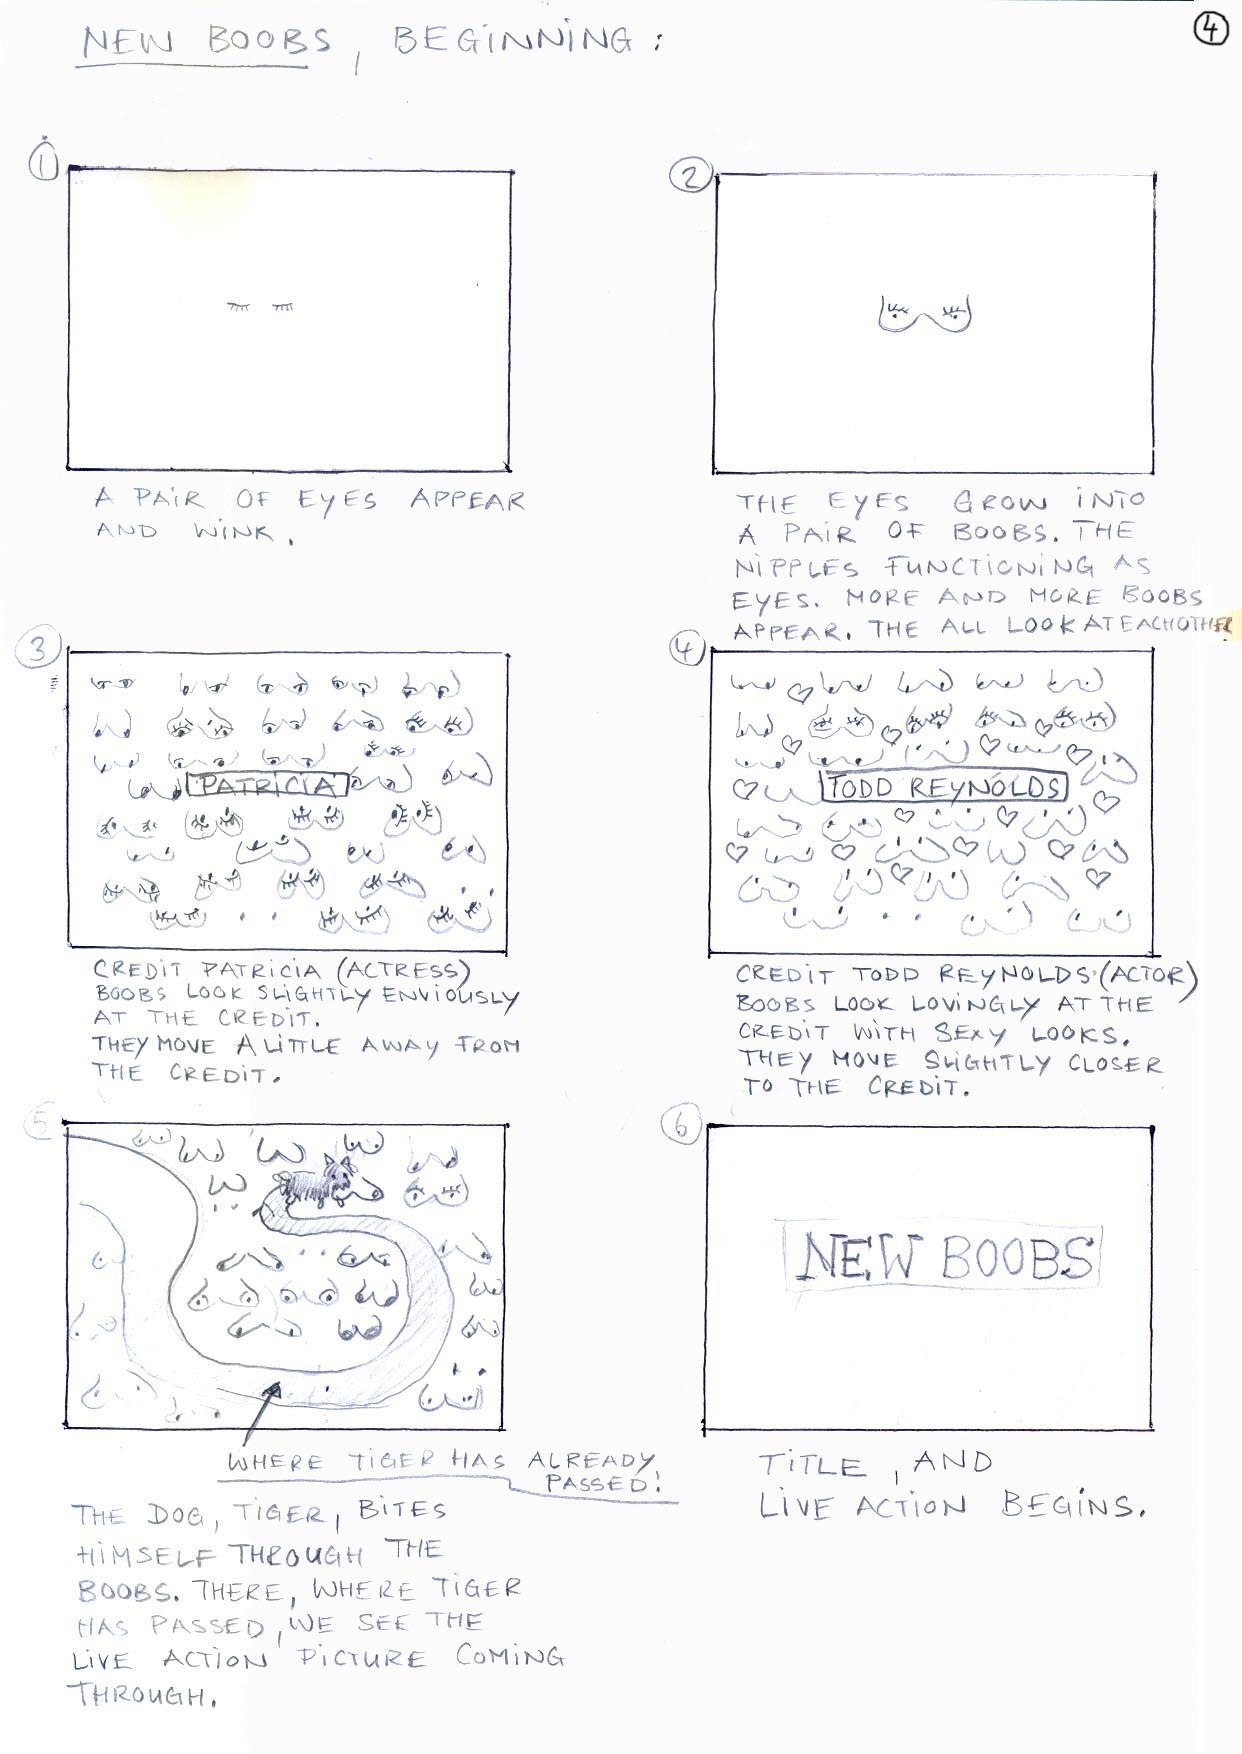 NEW BOOBS, BEGINNING:
4
1
2
A PAIR OF EYES APPEAR
AND WINK.
THE EYES GROW INTO
A PAIR OF BOOBS. THE
NIPPLES FUNCTIONING AS
EYES. MORE AND MORE BOOBS
APPEAR. THE ALL LOOK AT EACHOTHER
3
PATRICIA
CREDIT PATRICIA (ACTRESS)
BOOBS LOOK SLIGHTLY ENVIOUSLY
AT THE CREDIT.
THEY MOVE A LITTLE AWAY FROM
THE CREDIT.
4
TODD REYNOLDS
CREDIT TODD REYNOLDS (ACTOR)
BOOBS LOOK LOVINGLY AT THE
CREDIT WITH SEXY LOOKS.
THEY MOVE SLIGHTLY CLOSER
TO THE CREDIT.
5
WHERE TIGER HAS ALREADY
PASSED!
THE DOG, TIGER, BITES
HIMSELF THROUGH THE
BOOBS. THERE, WHERE TIGER
HAS PASSED, WE SEE THE
LIVE ACTION PICTURE COMING
THROUGH.
6
NEW BOOBS
TITLE, AND
LIVE ACTION BEGINS.